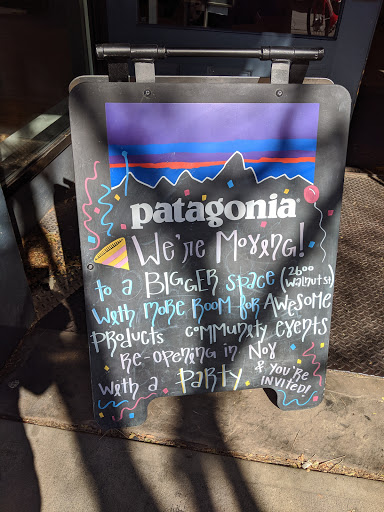 patagonia®
We're Moving!
to a BIGGER space (2600 Walnut St)
With more room for Awesome
Products community events
Re-opening in Nov
& You're
with a Party. INVITED!